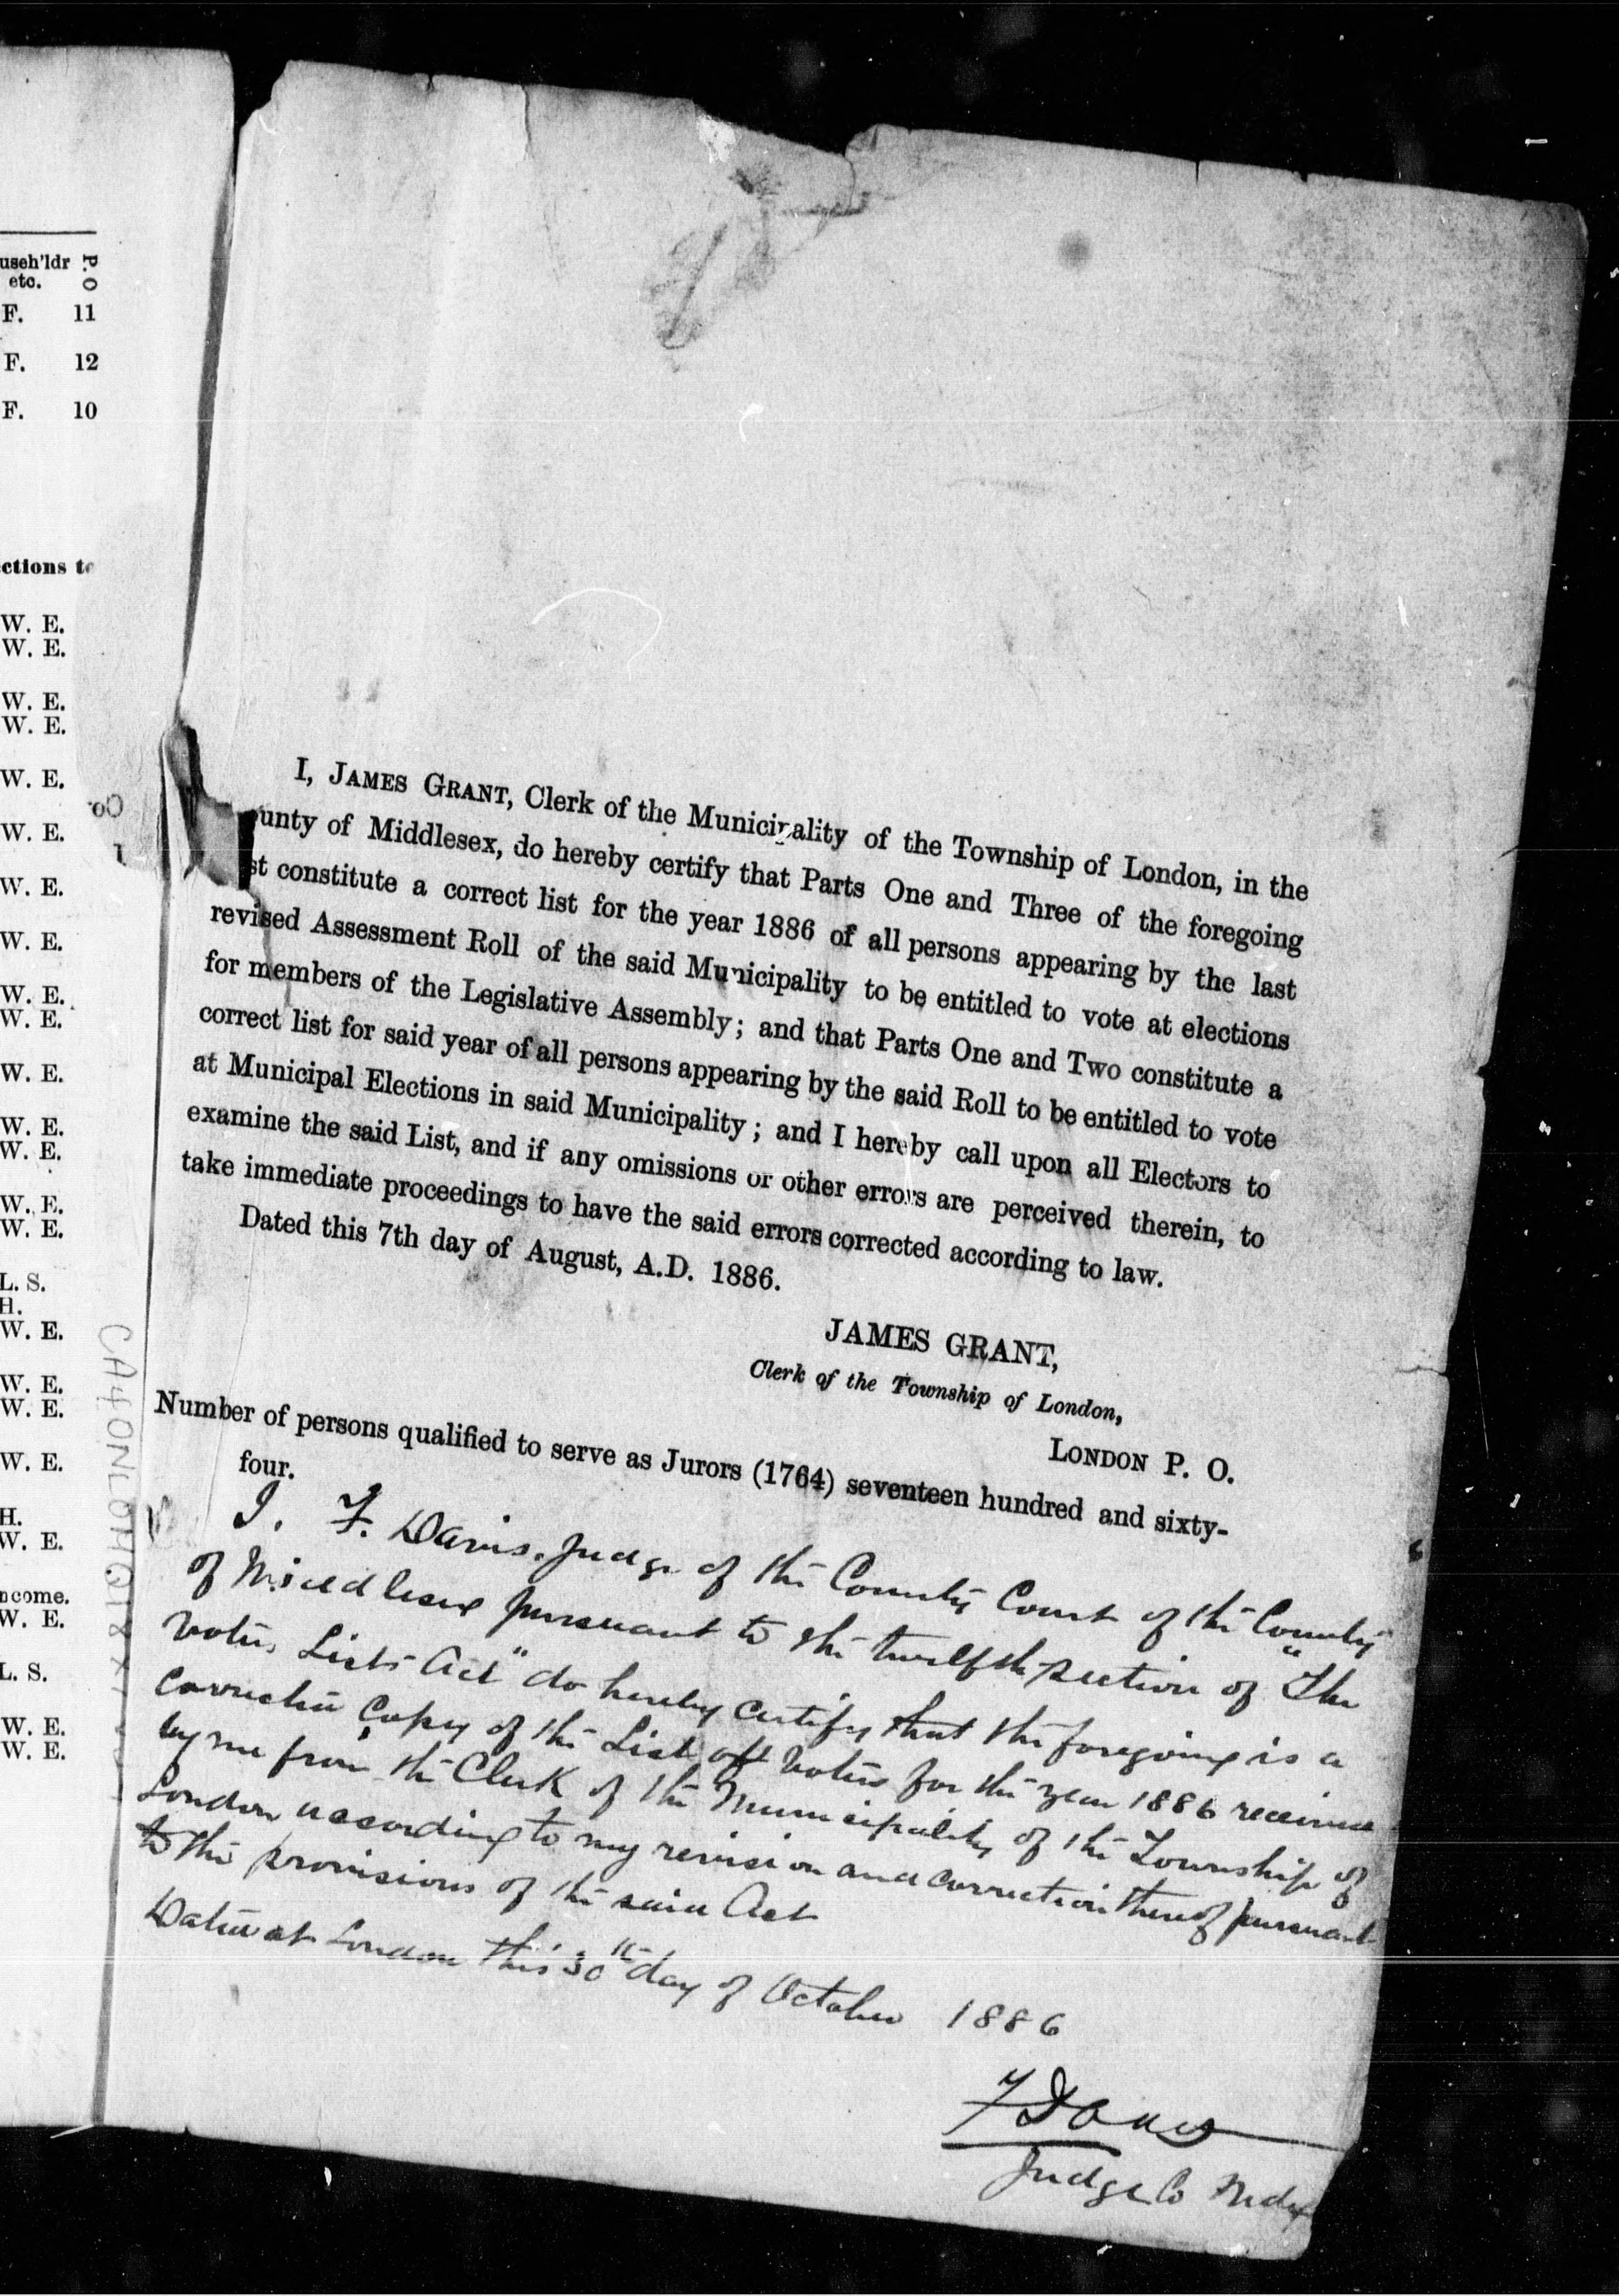 useh'ldr P.O
etc.
F. 11
F. 12
F. 10
ctions to
W. E.
W. E.
W. E.
W. E.
W. E.
W. E.
W. E.
W. E.
W. E.
W. E.
W. E.
W. E.
W. E.
W. E.
W. E.
L. S.
H.
W. E.
W. E.
W. E.
W. E.
H.
W. E.
ncome.
W. E.
L. S.
W. E.
W. E.
Co.
I, JAMES GRANT, Clerk of the Municipality of the Township of London, in the
ounty of Middlesex, do hereby certify that Parts One and Three of the foregoing
st constitute a correct list for the year 1886 of all persons appearing by the last
revised Assessment Roll of the said Municipality to be entitled to vote at elections
for members of the Legislative Assembly; and that Parts One and Two constitute a
correct list for said year of all persons appearing by the said Roll to be entitled to vote
at Municipal Elections in said Municipality; and I hereby call upon all Electors to
examine the said List, and if any omissions or other errors are perceived therein, to
take immediate proceedings to have the said errors corrected according to law.
Dated this 7th day of August, A.D. 1886.
JAMES GRANT,
Clerk of the Township of London,
LONDON P. O.
Number of persons qualified to serve as Jurors (1764) seventeen hundred and sixty-
four.
I. F. Davis. Judge of the County Court of the County
of Middlesex pursuant to the twelfth section of "The
Voters Lists Act" do hereby certify that the foregoing is a
corrected copy of the List of Voters for the year 1886 received
by me from the Clerk of the Municipality of the Township of
London according to my revision and correction thereof pursuant
to the provisions of the said Act
Dated at London this 30th day of October 1886
F Davis
Judge Co Mdx